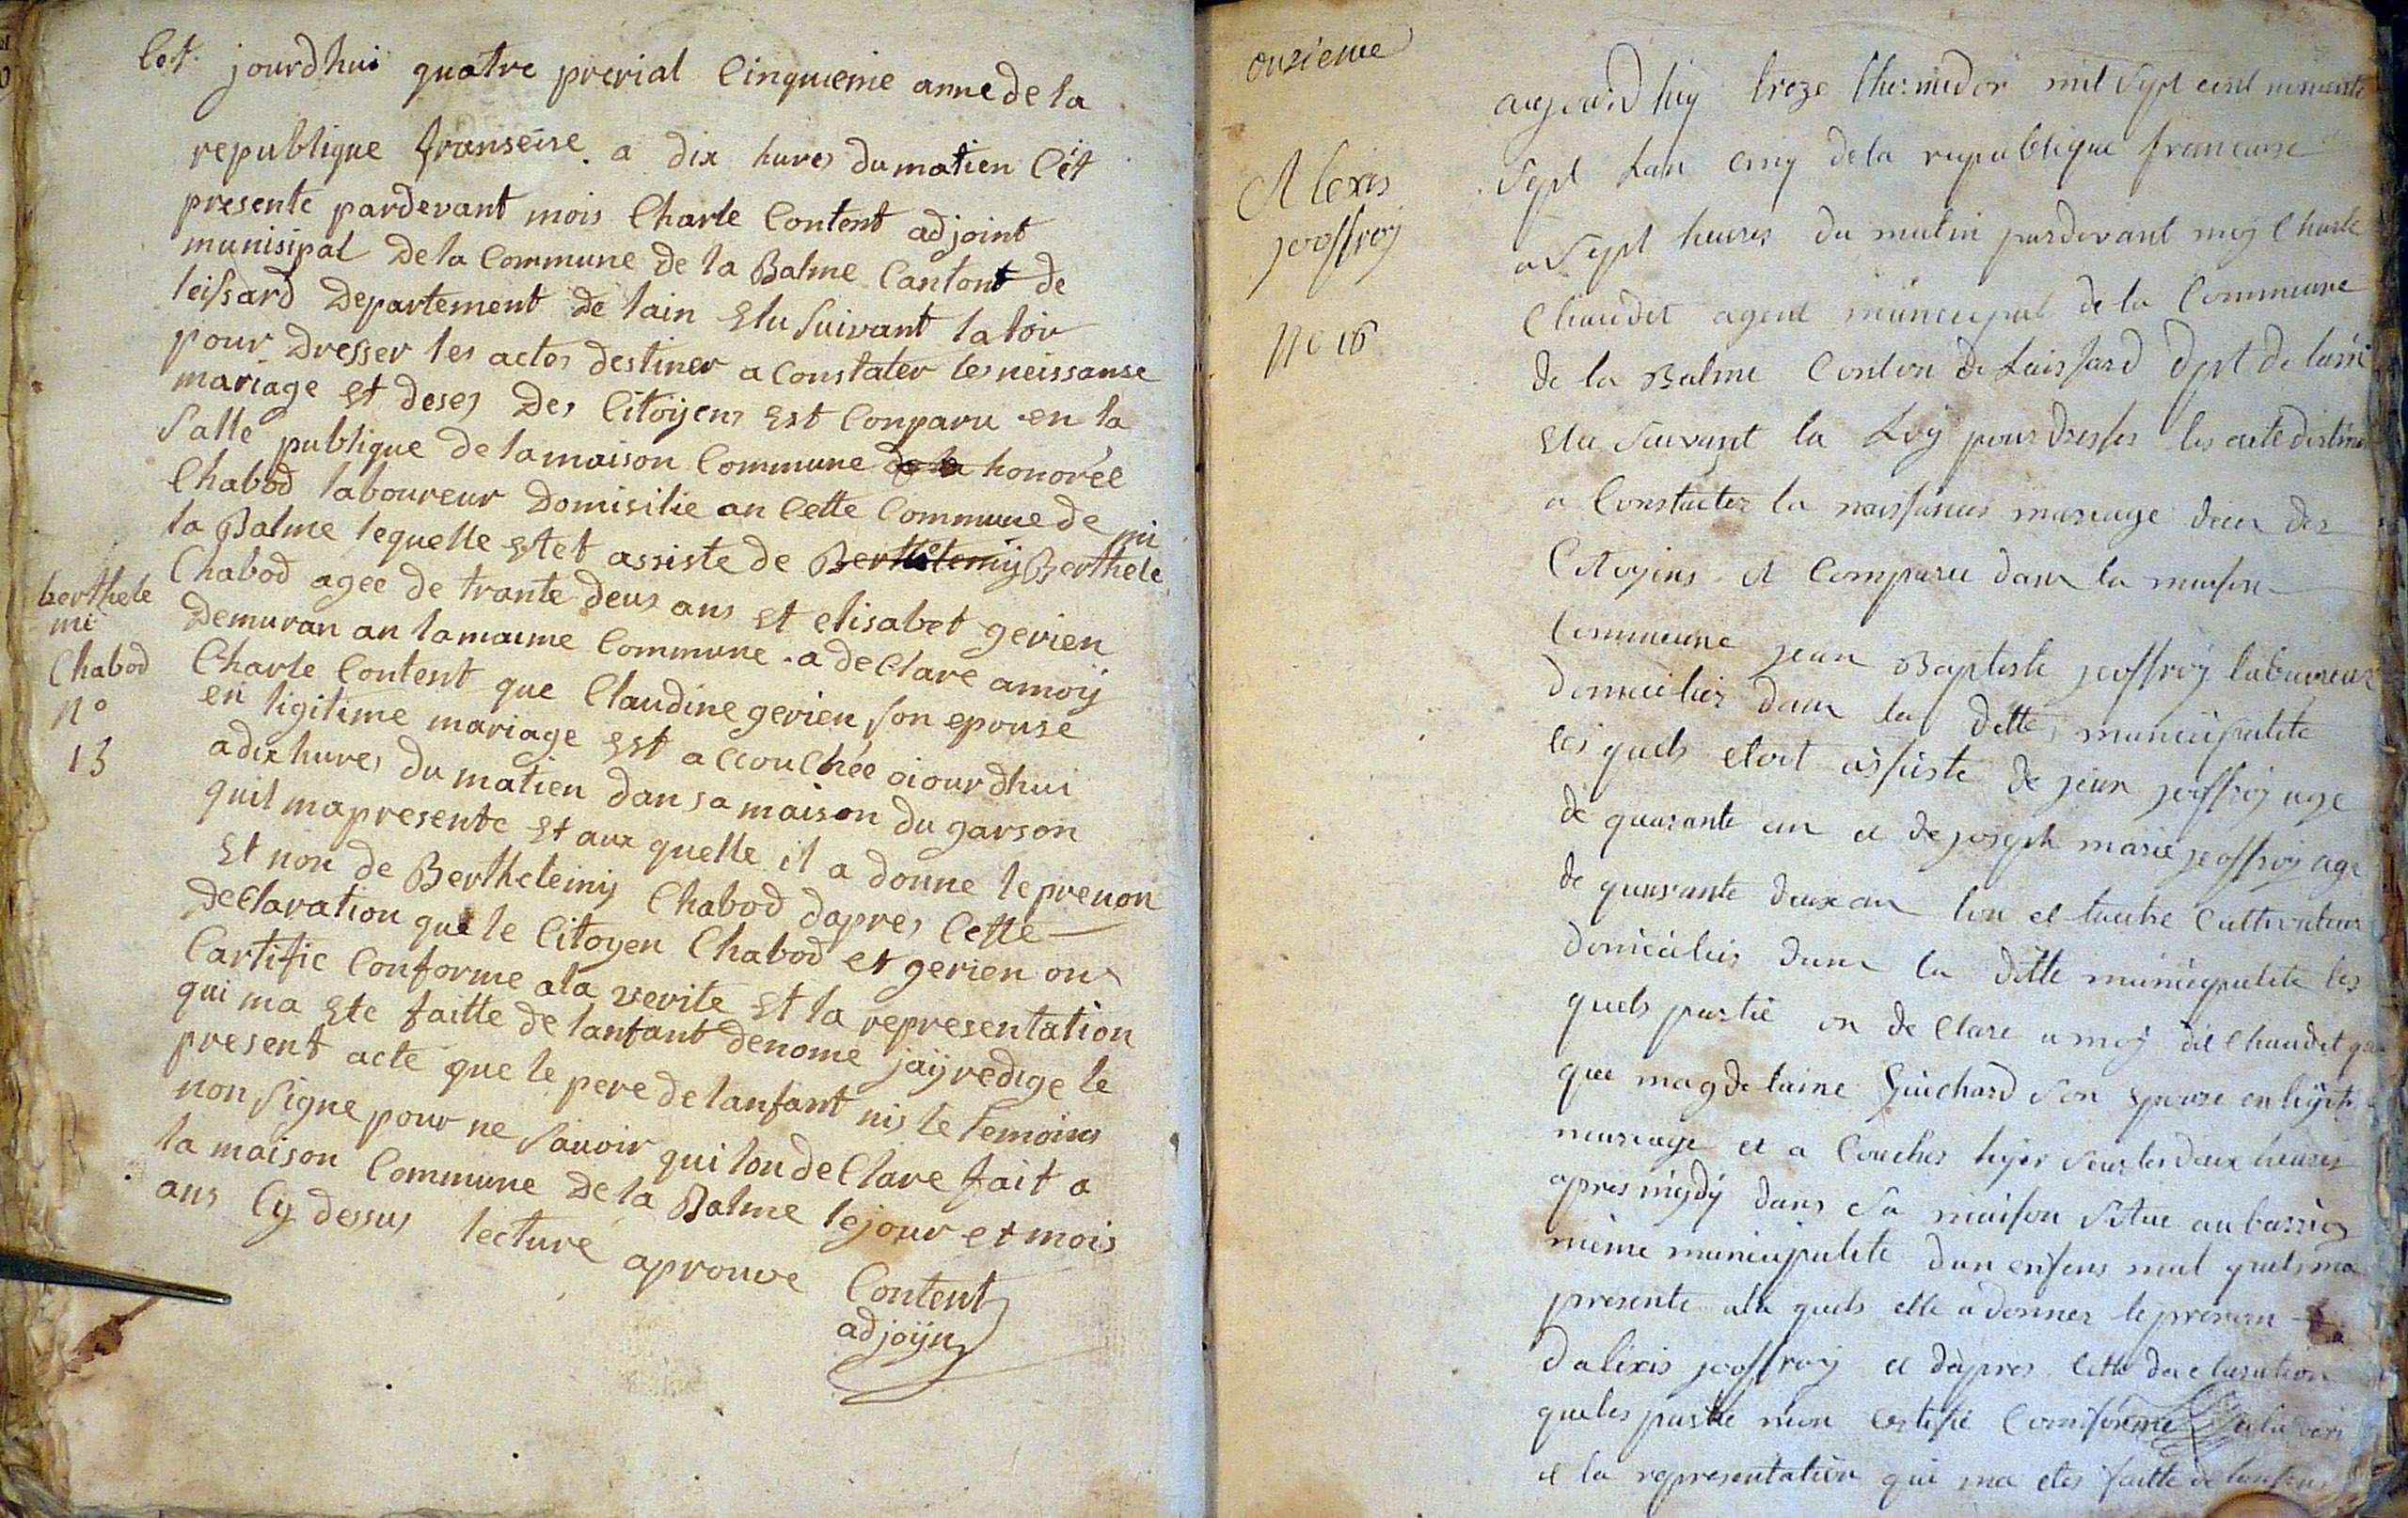 Cet jourdhui quatre prerial Cinquieme anne de la
republique franseise a dix hures du matien Cét
presente pardevant mois Charle Content adjoint
munisipal De la Commune de la Balme Cantont de
leissard Departement de lain Elu Suivant la loiv
pour Dresser les actes destiner a Constater les neissanse
mariage et deses Des Citöyens Est Conparu en la
Salle publique de la maison Commune de la honoréé
Chabod laboureur Domisilie an Cette Commune de
la Balme lequelle Etet assiste de Berthelemy Berthele
mi
Chabod agee de trante deus ans Et elisabet gerien
Demuran an la maime Commune a deClare amoÿ
Charle Content que Claudine gerien Son epouse
en ligitime mariage Est accouchée oiourdhui
a dix hures du matien dan sa maison du garson
quil ma presente Et aux quelle il a donne le prenon
Et non de Berthelemiy Chabod dapres Cette
deClaration que le Citoyen Chabod et gerien on
Cartifie Conforme ala verite Et la representation
qui ma Ete faitte de lanfant denome jaÿ redige le
present acte que le pere de lanfant nis le temoins
non Signe pour ne Savoir qui lon deClare fait a
la maison Commune De la Balme le jour et mois
ans Cy dessus lecture aprouve Content
adjoijn
berthele
mi
Chabod
n°
13
onzieme
Alexis
jeoffroy
N° 16
aujourd huy treze thermidor mil Sept cent nonante
Sept Lan cinq de la republique francaise
a Sept heures du matin pardevant moy Charle
Chaudet agent municipal de la Commune
de la Balme Conton de Laissard dpt de lain
Elu Suivant la Loy pour dresser les acte distine
a Constater la naissances mariage deces des
Citoyens et Comparu dans la maison
Commune jean Baptiste jeoffroy laboureur
domicilier dans la ditte municipalite
les quels etoit assiste de jean jeoffroy age
de quarante an et de joseph marie jeoffroy age
de quarante deux an lon et lautre Cultivateur
domicilies dans la ditte municipalite les
quels partie on de Clare a moy dit Chaudet
que magdelaine Guichard Son Epouse en ligit
mariage et a Couches hyer Sur les deux heures
apres miydy dans Sa maison Situe au
même municipalite dun enfens mal quels ma
presente ala quels elle a donner le prenom
dalixis jeoffroy et dapres Cette de claration
que les partie mon Certifie Comforme ala veri
et la representation qui ma etes faitte de lenfens